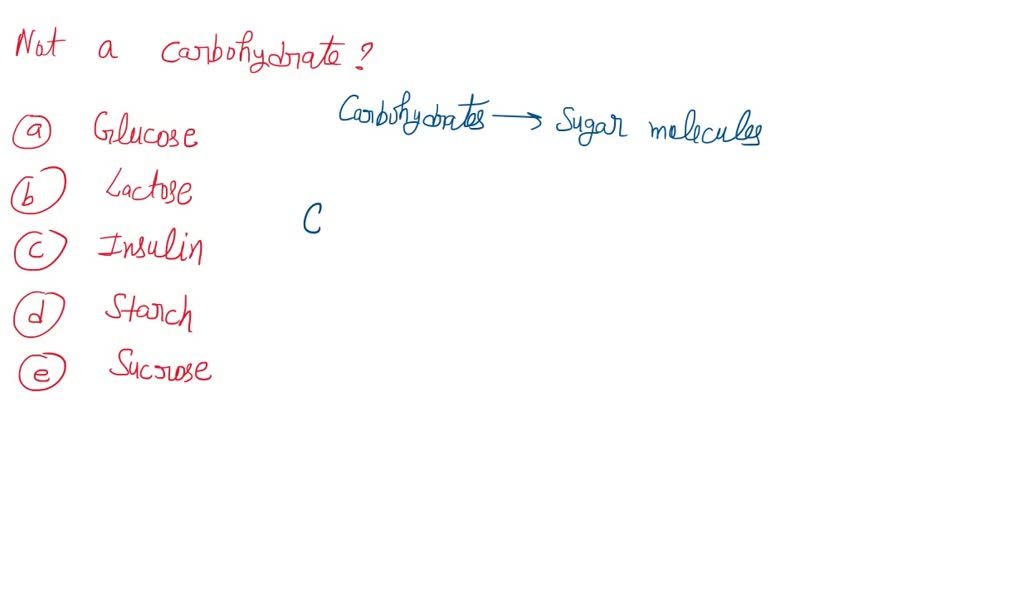 Not a Carbohydrate?
Carbohydrates → Sugar molecules
a Glucose
b Lactose
C
c Insulin
d Starch
e Sucrose